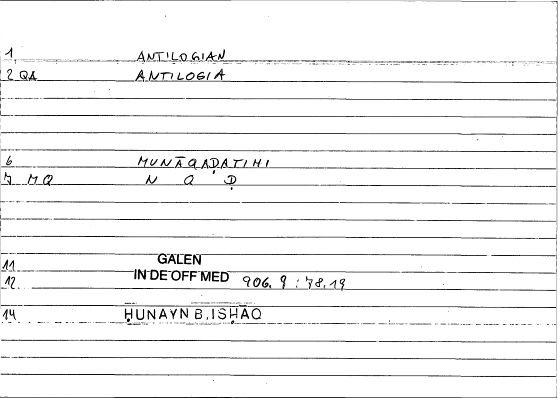 1 ANTILOGIAN
2 QA ANTILOGIA
6 MUNĀQAḌATIHI
7 MQ N Q Ḍ
11 GALEN
12 IN DE OFF MED 906.9 : 78.19
14 ḤUNAYN B. ISḤĀQ